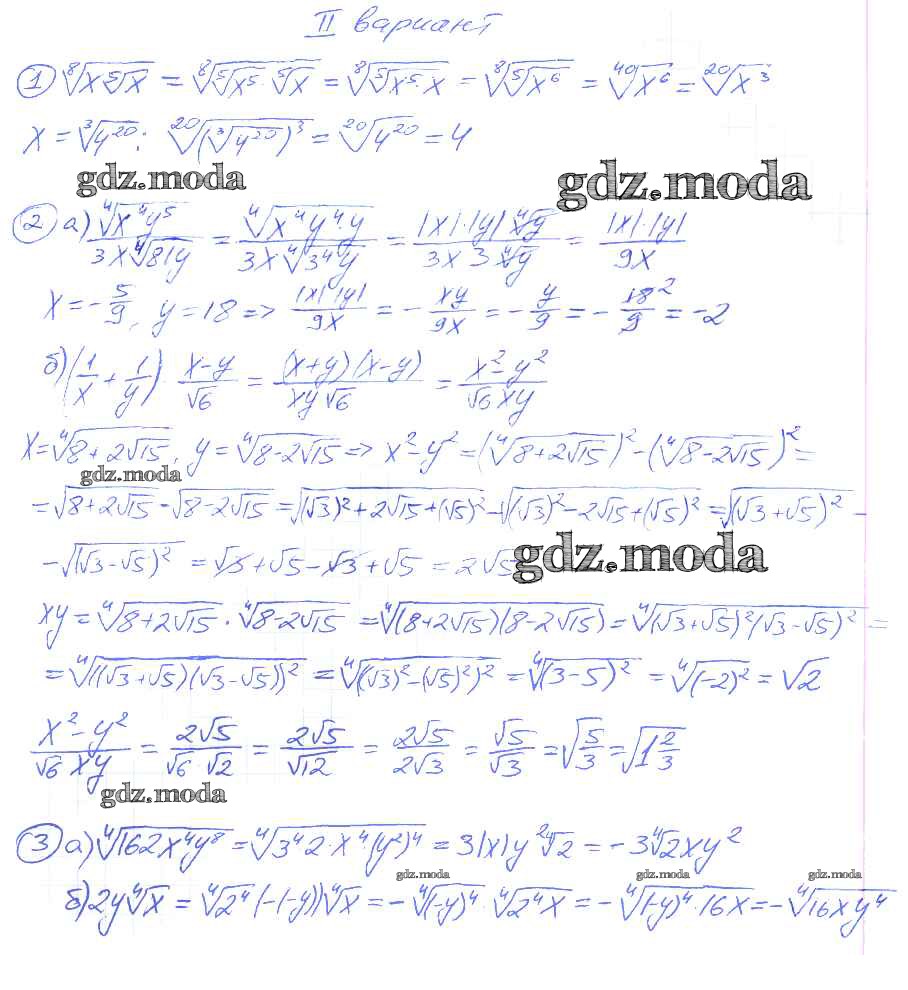 II вариант
① ⁸√(x ⁵√x) = ⁸√(⁵√(x⁵) · ⁵√x) = ⁸√(⁵√(x⁵ · x)) = ⁸√(⁵√(x⁶)) = ⁴⁰√(x⁶) = ²⁰√(x³)
x = ³√(4²⁰): ²⁰√((³√(4²⁰))³) = ²⁰√(4²⁰) = 4
gdz.moda gdz.moda
② а) ⁴√(x⁴y⁵) / (3x ⁴√(81y)) = ⁴√(x⁴y⁴·y) / (3x ⁴√(3⁴y)) = |x|·|y| ⁴√y / (3x 3 ⁴√y) = |x|·|y| / 9x
x = -5/9, y = 18 => |x|·|y| / 9x = - xy/9x = - y/9 = - 18/9 2 = -2
б) (1/x + 1/y) (x-y)/√6 = (x+y)(x-y) / (xy√6) = (x² - y²) / (√6 xy)
x = ⁴√(8+2√15), y = ⁴√(8-2√15) => x² - y² = (⁴√(8+2√15))² - (⁴√(8-2√15))² =
gdz.moda
= √(8+2√15) - √(8-2√15) = √((√3)² + 2√15 + (√5)²) - √((√3)² - 2√15 + (√5)²) = √((√3+√5)²) -
- √((√3-√5)²) = √3 + √5 - √3 + √5 = 2√5
gdz.moda
xy = ⁴√(8+2√15) · ⁴√(8-2√15) = ⁴√((8+2√15)(8-2√15)) = ⁴√((√3+√5)²(√3-√5)²) =
= ⁴√(((√3+√5)(√3-√5))²) = ⁴√(((√3)²-(√5)²)²) = ⁴√((3-5)²) = ⁴√((-2)²) = √2
(x² - y²) / (√6 xy) = 2√5 / (√6·√2) = 2√5 / √12 = 2√5 / 2√3 = √5/√3 = √(5/3) = √(1 2/3)
gdz.moda
③ а) ⁴√(162x⁴y⁸) = ⁴√(3⁴2·x⁴(y²)⁴) = 3|x|y² ⁴√2 = -3 ⁴√2 xy²
gdz.moda gdz.moda gdz.moda
б) 2y ⁴√x = ⁴√(2⁴) (-(-y)) ⁴√x = - ⁴√((-y)⁴) · ⁴√(2⁴x) = - ⁴√((-y)⁴ · 16x) = - ⁴√(16xy⁴)